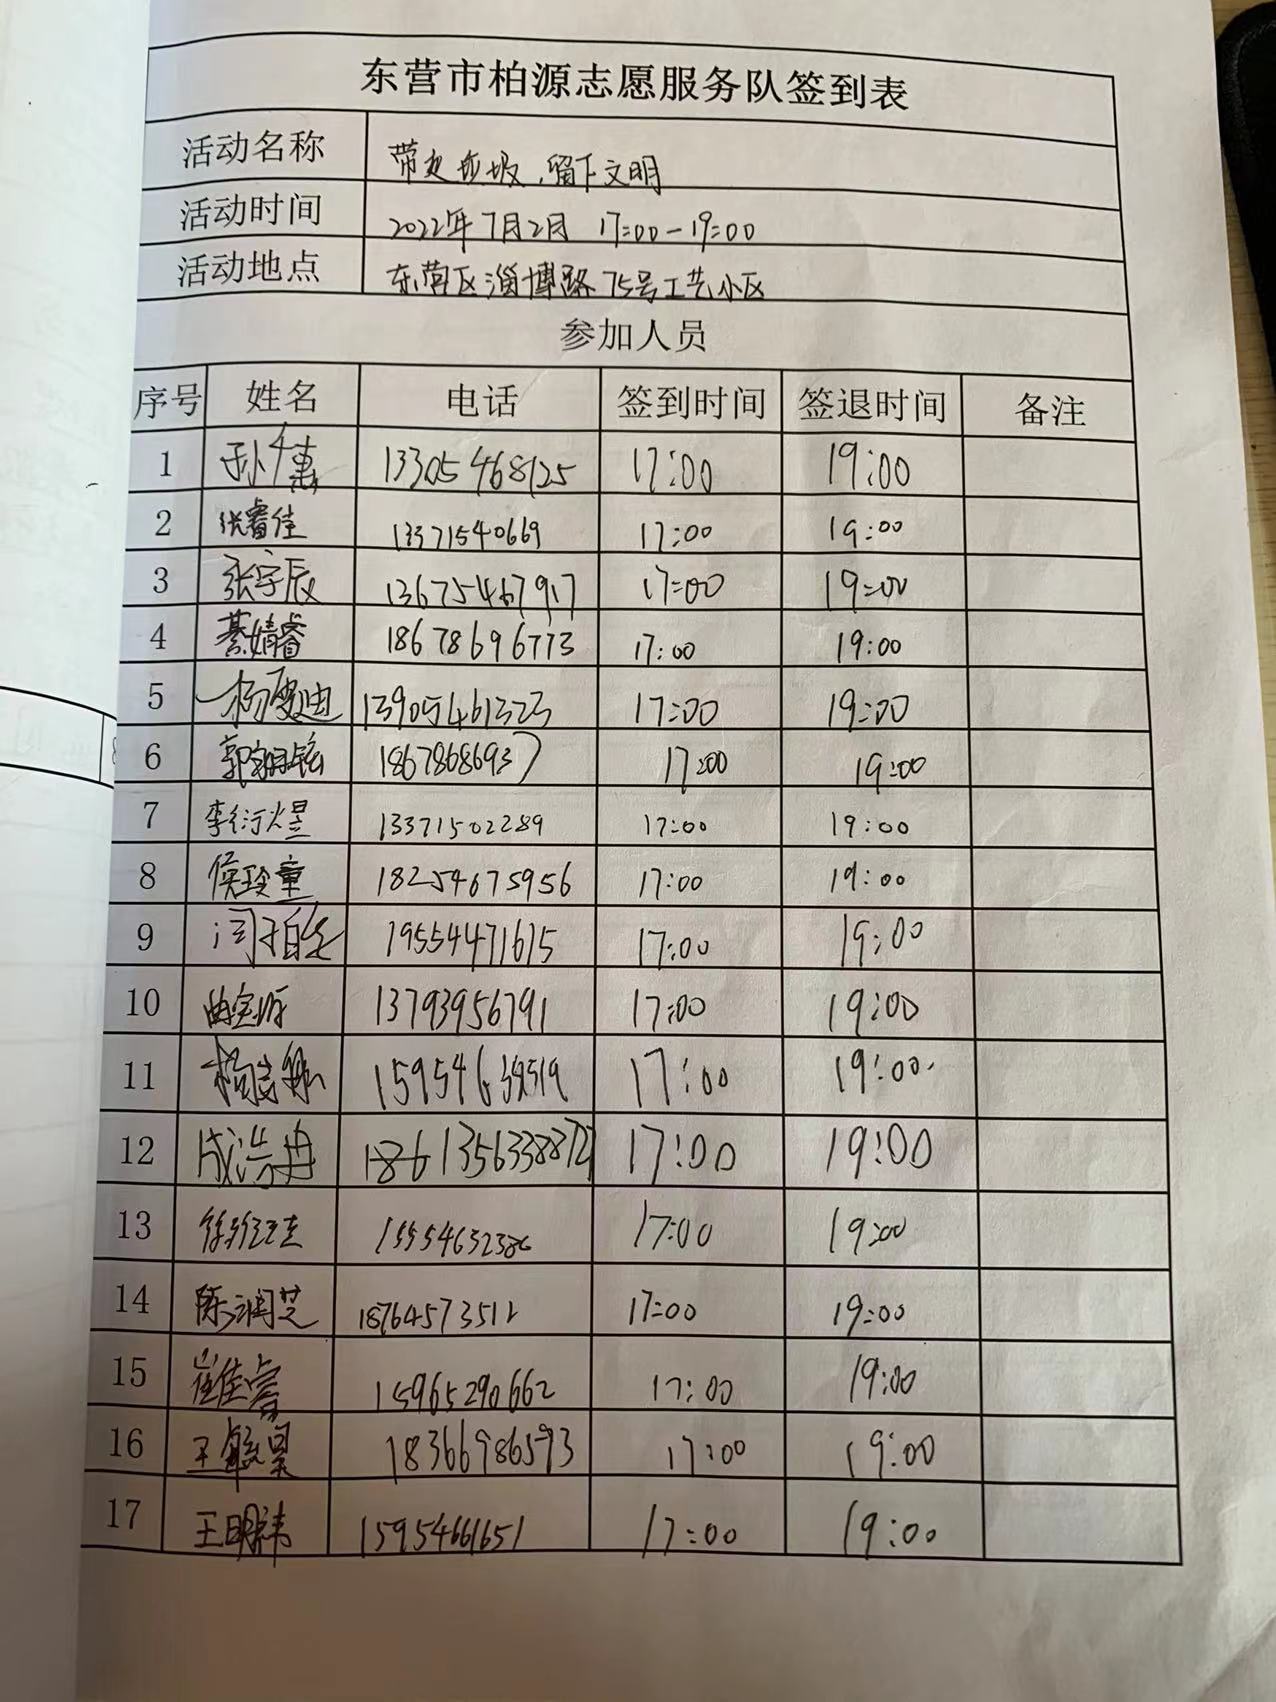 东营市柏源志愿服务队签到表
活动名称 带走垃圾，留下文明
活动时间 2022年7月2日 17:00-19:00
活动地点 东营区淄博路75号工艺小区
参加人员
序号 姓名 电话 签到时间 签退时间 备注
1 孙千惠 13305468125 17:00 19:00
2 张睿佳 13371540669 17:00 19:00
3 张宇辰 13675467917 17:00 19:00
4 綦婧睿 18678696773 17:00 19:00
5 杨 迪 13905461323 17:00 19:00
6 郭 18678686937 17:00 19:00
7 李衍煜 13371502289 17:00 19:00
8 侯 童 18254675956 17:00 19:00
9 19554471615 17:00 19:00
10 曲 13793956791 17:00 19:00
11 杨 17:00 19:00
12 成浩冉 13563388727 17:00 19:00
13 徐 15554632386 17:00 19:00
14 陈润芝 18764573512 17:00 19:00
15 崔佳睿 15965290662 17:00 19:00
16 王 昊 18366986593 17:00 19:00
17 王明祎 15954661651 17:00 19:00